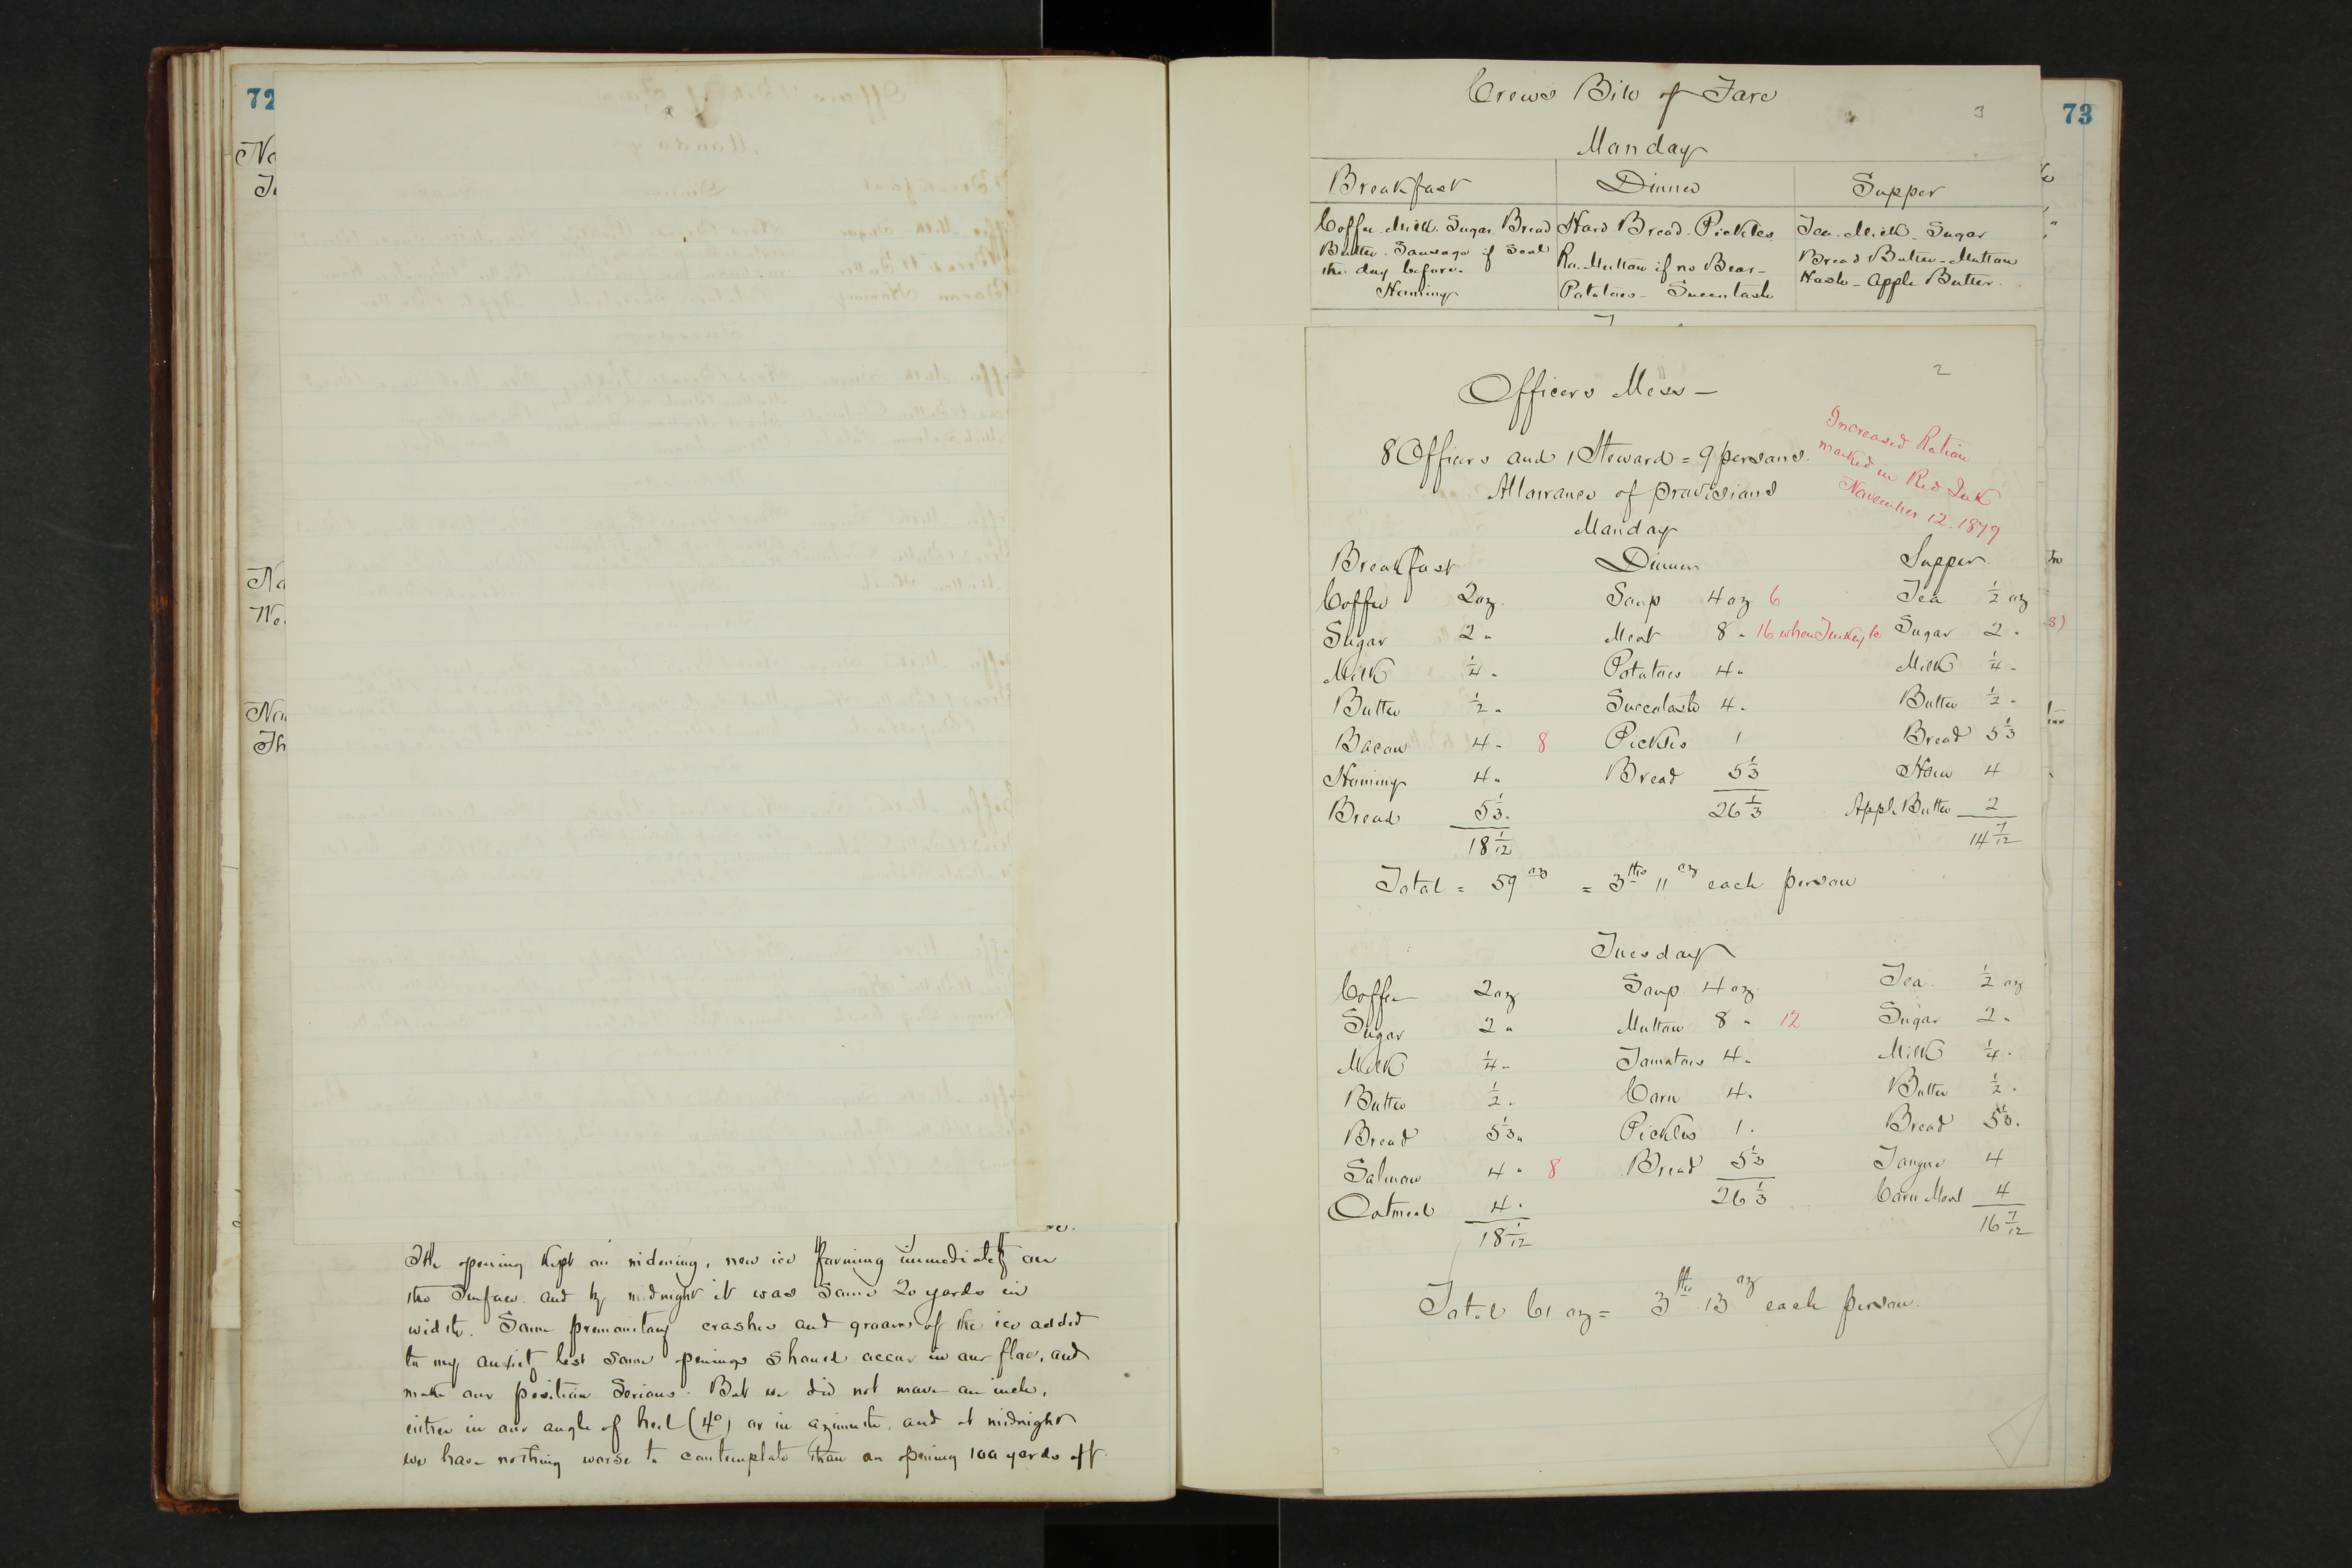 72
No
Na
We
Nov
Th
The opening kept on widening, new ice forming immediately on
the surface and by midnight it was some 20 yards in
width. Some premonitory crashes and groans of the ice added
to my anxiety lest some openings should occur in our floe, and
make our position serious. But we did not move an inch,
either in our angle of heel (4°) or in azimuth, and at midnight
we have nothing worse to contemplate than an opening 100 yards off.
73
Crews Bill of Fare
3
Monday
Breakfast Dinner Supper
Coffee. Milk. Sugar. Bread Hard Bread. Pickles. Tea. Milk. Sugar
Butter. Sausage if Seal Ro. Mutton if no Bear - Bread Butter - Mutton
the day before. Potatoes - Succotash Hash - Apple Butter.
Hominy
2
Officers Mess -
8 Officers and 1 Steward = 9 persons.
Allowance of provisions
Increased Ration
marked in Red Ink
November 12. 1879
Monday
Breakfast Dinner Supper.
Coffee 2 oz. Soup 4 oz 6 Tea 1/2 oz
Sugar 2 " Meat 8 " 16 when Turkey Sugar 2 "
Milk 1/4 " Potatoes 4 " Milk 1/4 "
Butter 1/2 " Succotash 4 " Butter 1/2 "
Bacon 4 " 8 Pickles 1 Bread 5 1/3
Hominy 4 " Bread 5 1/3 Ham 4
Bread 5 1/3 " 26 1/3 Apple Butter 2
18 1/12 14 7/12
Total = 59 oz = 3 lbs 11 oz each person
Tuesday
Coffee 2 oz Soup 4 oz Tea 1/2 oz
Sugar 2 " Mutton 8 " 12 Sugar 2 "
Milk 1/4 " Tomatoes 4 " Milk 1/4 "
Butter 1/2 " Corn 4 " Butter 1/2 "
Bread 5 1/3 " Pickles 1 " Bread 5 1/3 "
Salmon 4 " 8 Bread 5 1/3 Tongue 4
Oatmeal 4 " 26 1/3 Corn Meal 4
18 1/12 16 7/12
Total 61 oz = 3 lbs 13 oz each person.